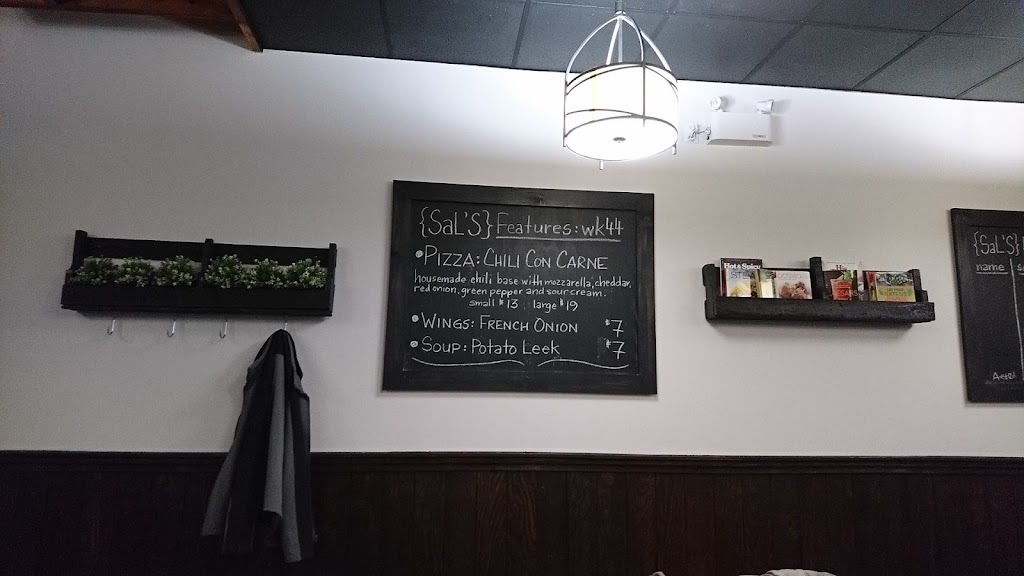 {SaL'S} Features: wk44
• PIZZA: CHILI CON CARNE
housemade chili base with mozzarella, cheddar,
red onion, green pepper and sour cream.
small $13 large $19
• WINGS: FRENCH ONION $7
• SOUP: POTATO LEEK $7
Hot & Spicy
{SaL'S}
name